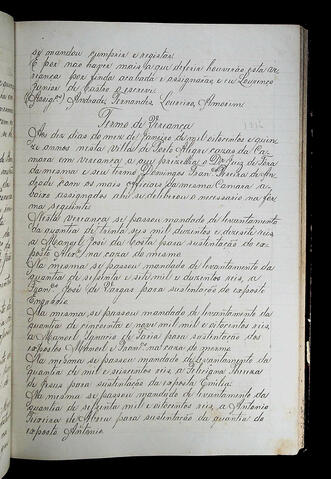 se mandou cumprir e registar
E por não haver mais a que deferir houverão esta ve-
riança por finda acabada e assignarão, e eu Lourenço
Junior de Castro o escrevi
Andrade, Fernandes, Loureiro, Amorim
Termo de Veriança
Aos dez dias do mez de Janeiro de mil oitocentos e quin-
ze annos nesta Villa de Porto Alegre cazas da Ca-
mara em veriança a que prizedio o Dr. Juiz de Fora
da mesma e seu termo Domingos Fran.co de An-
drade com os mais Officiaes da mesma Camara a-
baixo assignados ahi se deliberou o necessario na for-
ma seguinte
Nesta veriança se passou mandado de levantamento
da quantia de trinta seis mil duzentos e dezesete reis
a Manoel José da Costa para sustentação do ex-
posto na caza do mesmo
Na mesma se passou mandado de levantamento da
quantia de sessenta e sete mil e duzentos reis, a
José de Vargas para sustentação do exposto
Engracio
Na mesma se passou mandado de levantamento da
quantia de cincoenta e nove mil e oitocentos reis,
a Manoel de Faria para sustentação dos
expostos Manoel e na caza do mesmo
Na mesma se passou mandado de levantamento da
quantia de mil e seiscentos reis, a Thereza
de Jesus para sustentação da exposta Emilia
Na mesma se passou mandado de levantamento da
quantia de setenta mil e oitocentos reis, a Antonio
de Abreu para sustentação da quantia do
exposto Antonio